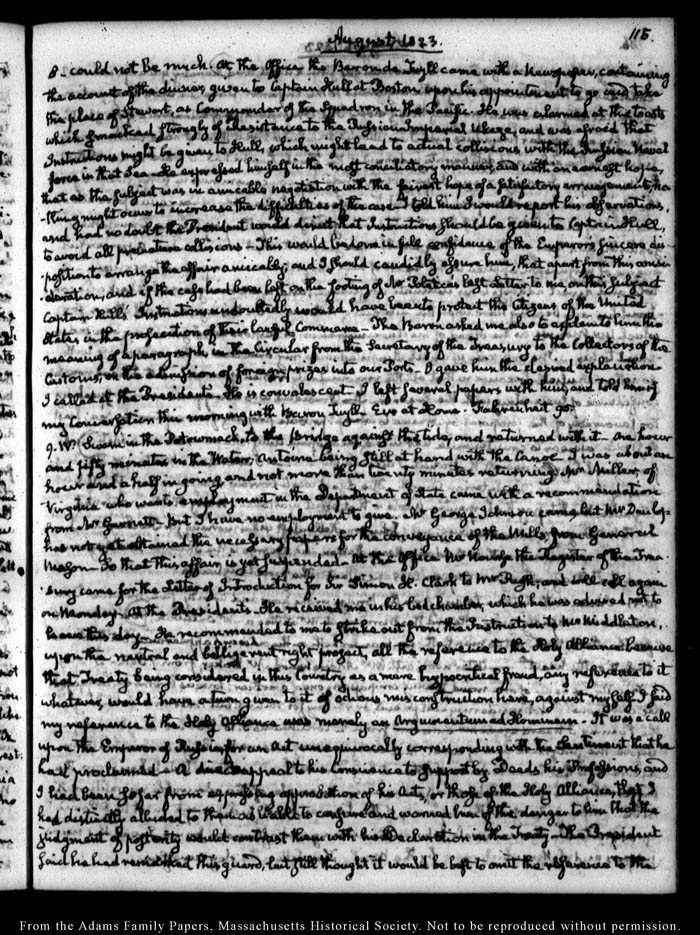 August 1823.
115.
8. could not be much. At the Office the Baron de Tuyll came with a Newspaper, containing
the account of the dinner, given to Captain Hull at Boston upon his appointment to go and take
the place of Stewart, as Commander of the Squadron in the Pacific. He was alarmed at the toasts
which smacked strongly of Resistance to the Russian Imperial Ukaze, and was afraid that
Instructions might be given to Hull, which might lead to actual collisions with the Russian Naval
force in that Sea. He expressed himself in the most conciliatory manner, and with an earnest hope,
that as the subject was in amicable negotiation with the fairest hope of a satisfactory arrangement, no
thing might occur to increase the difficulties of the case. I told him I would report his observations,
and had no doubt the President would direct that Instructions should be given to Captain Hull,
to avoid all premature collisions - This would be done in full confidence of the Emperor's sincere dis-
position to arrange the affair amicably; and I should candidly assure him, that apart from this consi-
deration, and if the case had been left on the footing of Mr Poletica's last Letter to me on this subject
Captain Hull's Instructions undoubtedly would have been to protect the Citizens of the United
States in the prosecution of their lawful Commerce - The Baron asked me also to explain to him the
meaning of a paragraph, in the Circular from the Secretary of the Treasury to the Collectors of the
Customs, on the admission of foreign prizes into our Ports. I gave him the desired explanation
I called at the President's. He is convalescent. I left several papers with him, and told him of
my conversation this morning with Baron Tuyll. Eve at Home. Fahrenheit 90.
9. IV. Swam in the Potowmack, to the bridge against the tide, and returned with it. One hour
and fifty minutes in the Water, Antoine being still at hand with the Canoe. I was about an
hour and a half in going and not more than twenty minutes returning. Mr Miller, of
Virginia who wants employment in the Department of State came with a recommendation
from Mr Garnett - But I have no employment to give. Mr George Johnson came, but Mr Dunlop
has not yet obtained the necessary papers for the conveyance of the Mills, from General
Mason. So that this affair is yet suspended. At the Office Mr Nourse the Register of the Trea-
sury came for the Letter of Introduction for Sir Simon H. Clark to Mr Rush, and will call again
on Monday. At the President's. He received me in his bed chamber, which he was advised not to
leave this day. He recommended to me to strike out from the Instruction to Mr Middleton,
upon the neutral and belligerent right project, all the reference to the Holy Alliance because
that Treaty being considered in this Country as a mere hypocritical fraud, any reference to it
whatever, would have a turn given to it of odious misconstruction here, against myself. I said
my reference to the Holy Alliance was merely an Argumentum ad Hominem. It was a call
upon the Emperor of Russia, for an Act unequivocally corresponding with the Sentiment that he
had proclaimed - A direct appeal to his Conscience to support by Deeds his Professions, and
I had been so far from expressing approbation of his Acts, or those of the Holy Alliance, that I
had distinctly alluded to them as liable to censure and warned him of the danger to him that the
judgment of posterity would contrast them with his Declaration in the Treaty - The President
said he had remarked this guard, but still thought it would be best to omit the reference to the
From the Adams Family Papers, Massachusetts Historical Society. Not to be reproduced without permission.